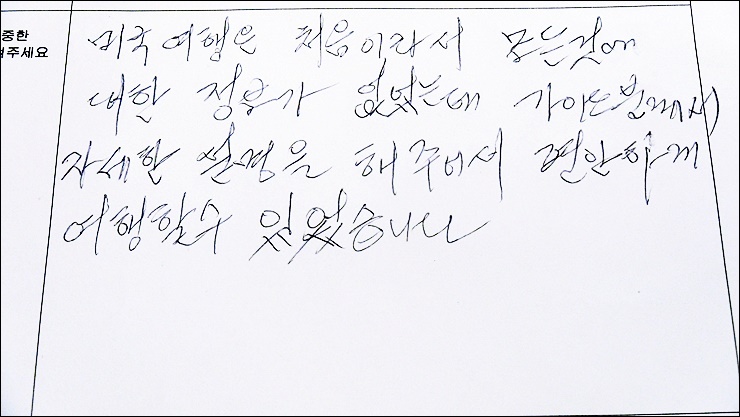 중한
겨주세요
미국 여행은 처음이라서 모든것에
대한 정부가 없었는데 가이드분께서
자세한 설명을 해주어서 편안하게
여행할수 있었습니다